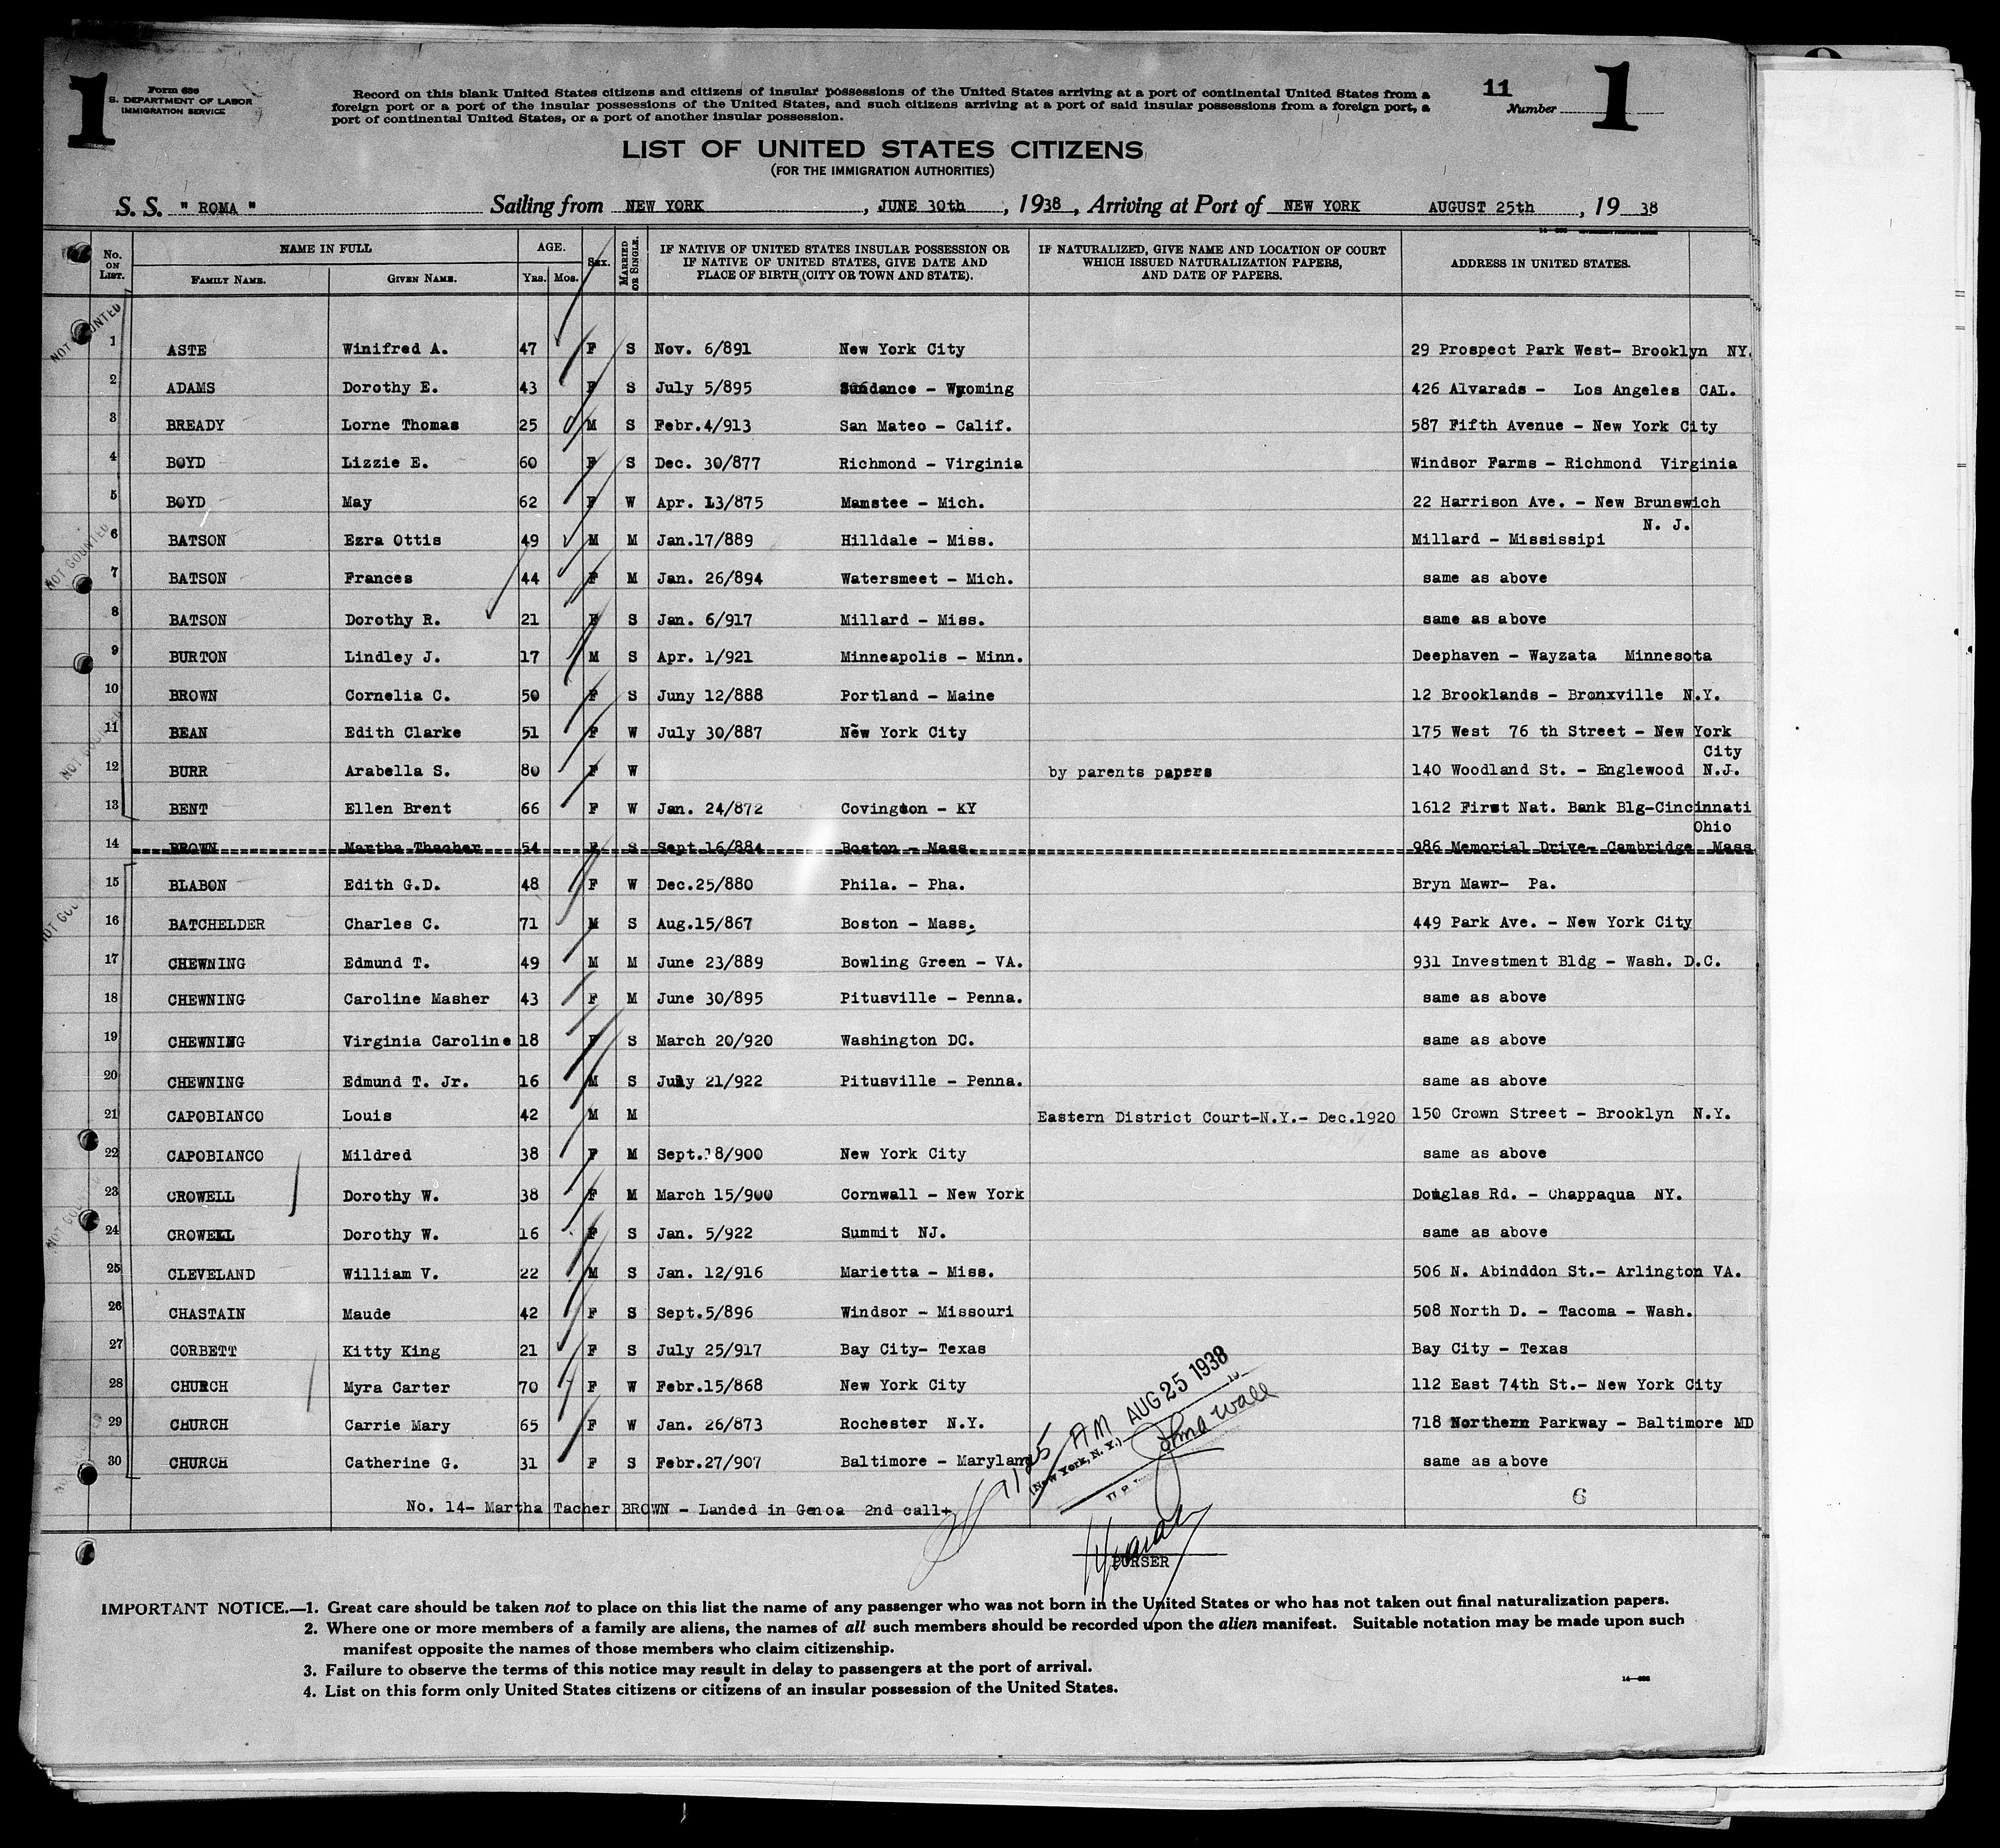 1
Form 630
S. DEPARTMENT OF LABOR
IMMIGRATION SERVICE
Record on this blank United States citizens and citizens of insular possessions of the United States arriving at a port of continental United States from a
foreign port or a port of the insular possessions of the United States, and such citizens arriving at a port of said insular possessions from a foreign port, a
port of continental United States, or a port of another insular possession.
11
Number
1
LIST OF UNITED STATES CITIZENS
(FOR THE IMMIGRATION AUTHORITIES)
S. S. " ROMA " Sailing from NEW YORK, JUNE 30th, 1938, Arriving at Port of NEW YORK AUGUST 25th, 19 38
No. ON LIST. NAME IN FULL FAMILY NAME. GIVEN NAME. AGE. Yrs. Mos. Sex. MARRIED OR SINGLE. IF NATIVE OF UNITED STATES INSULAR POSSESSION OR IF NATIVE OF UNITED STATES, GIVE DATE AND PLACE OF BIRTH (CITY OR TOWN AND STATE). IF NATURALIZED, GIVE NAME AND LOCATION OF COURT WHICH ISSUED NATURALIZATION PAPERS, AND DATE OF PAPERS. ADDRESS IN UNITED STATES.
NOT COUNTED
1 ASTE Winifred A. 47 F S Nov. 6/891 New York City 29 Prospect Park West- Brooklyn NY.
2 ADAMS Dorothy E. 43 F S July 5/895 Sundance - Wyoming 426 Alvarads - Los Angeles CAL.
3 BREADY Lorne Thomas 25 M S Febr.4/913 San Mateo - Calif. 587 Fifth Avenue - New York City
4 BOYD Lizzie E. 60 F S Dec. 30/877 Richmond - Virginia Windsor Farms - Richmond Virginia
5 BOYD May 62 F W Apr. 13/875 Mamstee - Mich. 22 Harrison Ave. - New Brunswich
N. J.
NOT COUNTED
6 BATSON Ezra Ottis 49 M M Jan.17/889 Hilldale - Miss. Millard - Mississipi
7 BATSON Frances 44 F M Jan. 26/894 Watersmeet - Mich. same as above
8 BATSON Dorothy R. 21 F S Jan. 6/917 Millard - Miss. same as above
9 BURTON Lindley J. 17 M S Apr. 1/921 Minneapolis - Minn. Deephaven - Wayzata Minnesota
10 BROWN Cornelia C. 50 F S Juny 12/888 Portland - Maine 12 Brooklands - Bronxville N.Y.
11 BEAN Edith Clarke 51 F W July 30/887 New York City 175 West 76 th Street - New York
City
12 BURR Arabella S. 80 F W by parents papers 140 Woodland St. - Englewood N.J.
13 BENT Ellen Brent 66 F W Jan. 24/872 Covington - KY 1612 First Nat. Bank Blg-Cincinnati
Ohio
14 BROWN Martha Thacher 54 F S Sept 16/884 Boston - Mass. 986 Memorial Drive- Cambridge Mass
15 BLABON Edith G.D. 48 F W Dec.25/880 Phila. - Pha. Bryn Mawr- Pa.
16 BATCHELDER Charles C. 71 M S Aug.15/867 Boston - Mass. 449 Park Ave. - New York City
17 CHEWNING Edmund T. 49 M M June 23/889 Bowling Green - VA. 931 Investment Bldg - Wash. D.C.
18 CHEWNING Caroline Masher 43 F M June 30/895 Pitusville - Penna. same as above
19 CHEWNING Virginia Caroline 18 F S March 20/920 Washington DC. same as above
20 CHEWNING Edmund T. Jr. 16 M S July 21/922 Pitusville - Penna. same as above
21 CAPOBIANCO Louis 42 M M Eastern District Court-N.Y.- Dec.1920 150 Crown Street - Brooklyn N.Y.
22 CAPOBIANCO Mildred 38 F M Sept.18/900 New York City same as above
23 CROWELL Dorothy W. 38 F M March 15/900 Cornwall - New York Douglas Rd. - Chappaqua NY.
24 CROWELL Dorothy W. 16 F S Jan. 5/922 Summit NJ. same as above
25 CLEVELAND William V. 22 M S Jan. 12/916 Marietta - Miss. 506 N. Abinddon St.- Arlington VA.
26 CHASTAIN Maude 42 F S Sept.5/896 Windsor - Missouri 508 North D. - Tacoma - Wash.
27 CORBETT Kitty King 21 F S July 25/917 Bay City- Texas Bay City - Texas
28 CHURCH Myra Carter 70 F W Febr.15/868 New York City 112 East 74th St.- New York City
29 CHURCH Carrie Mary 65 F W Jan. 26/873 Rochester N.Y. 718 Northern Parkway - Baltimore MD
30 CHURCH Catherine G. 31 F S Febr.27/907 Baltimore - Maryland same as above
AM AUG 25 1938
(New York, N. Y.)
No. 14- Martha Tacher BROWN - Landed in Genoa 2nd call+
6
PURSER
IMPORTANT NOTICE.—1. Great care should be taken not to place on this list the name of any passenger who was not born in the United States or who has not taken out final naturalization papers.
2. Where one or more members of a family are aliens, the names of all such members should be recorded upon the alien manifest. Suitable notation may be made upon such
manifest opposite the names of those members who claim citizenship.
3. Failure to observe the terms of this notice may result in delay to passengers at the port of arrival.
4. List on this form only United States citizens or citizens of an insular possession of the United States.